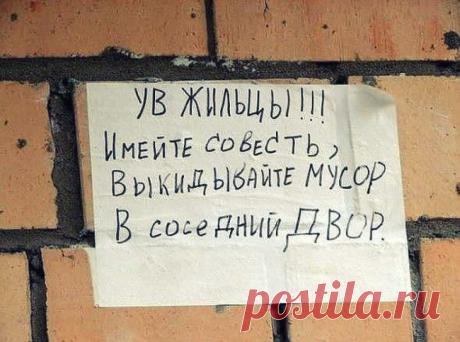 УВ ЖИЛЬЦЫ!!!
ИМЕЙТЕ СОВЕСТЬ,
ВЫКИДЫВАЙТЕ МУСОР
В СОСЕДНИЙ ДВОР.
postila.ru